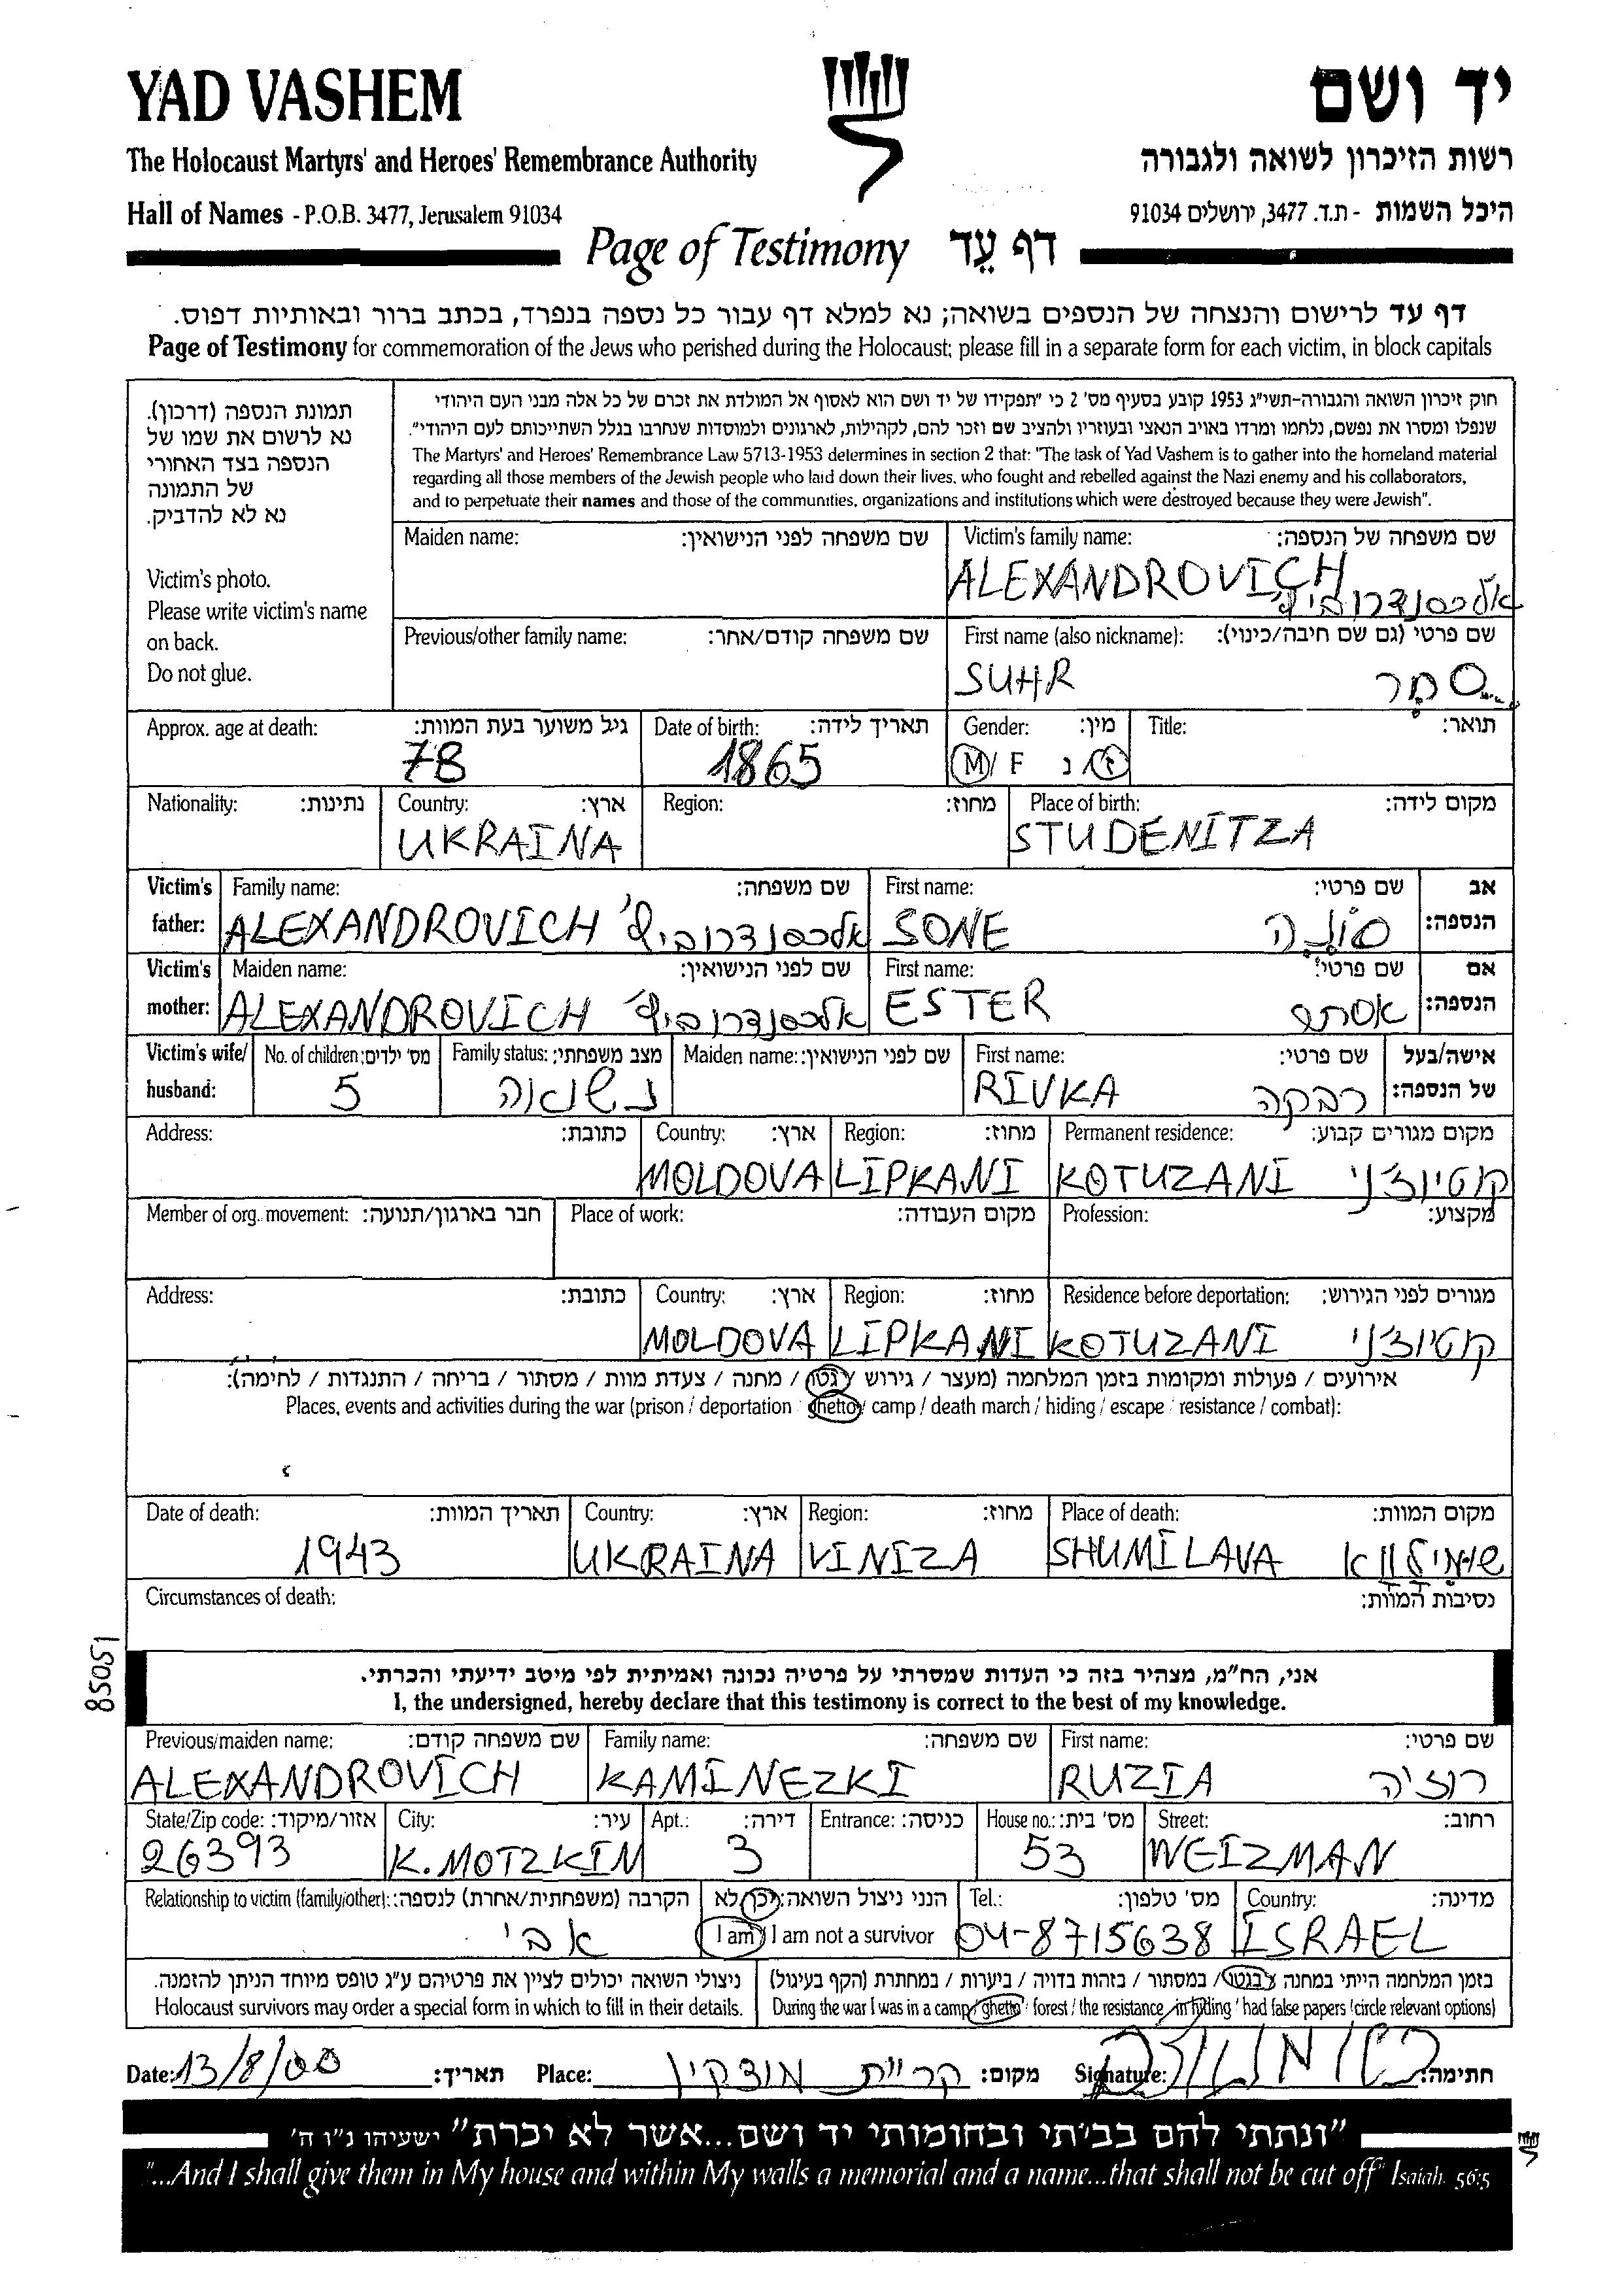 YAD VASHEM
יד ושם
The Holocaust Martyrs' and Heroes' Remembrance Authority
רשות הזיכרון לשואה ולגבורה
Hall of Names - P.O.B. 3477, Jerusalem 91034
היכל השמות - ת.ד. 3477, ירושלים 91034
Page of Testimony דף עֵד
דף עד לרישום והנצחה של הנספים בשואה; נא למלא דף עבור כל נספה בנפרד, בכתב ברור ובאותיות דפוס.
Page of Testimony for commemoration of the Jews who perished during the Holocaust; please fill in a separate form for each victim, in block capitals
תמונת הנספה (דרכון).
נא לרשום את שמו של
הנספה בצד האחורי
של התמונה
נא לא להדביק.
Victim's photo.
Please write victim's name
on back.
Do not glue.
חוק זיכרון השואה והגבורה-תשי"ג 1953 קובע בסעיף מס' 2 כי "תפקידו של יד ושם הוא לאסוף אל המולדת את זכרם של כל אלה מבני העם היהודי
שנפלו ומסרו את נפשם, נלחמו ומרדו באויב הנאצי ובעוזריו ולהציב שם וזכר להם, לקהילות, לארגונים ולמוסדות שנחרבו בגלל השתייכותם לעם היהודי".
The Martyrs' and Heroes' Remembrance Law 5713-1953 determines in section 2 that: "The task of Yad Vashem is to gather into the homeland material
regarding all those members of the Jewish people who laid down their lives, who fought and rebelled against the Nazi enemy and his collaborators,
and to perpetuate their names and those of the communities, organizations and institutions which were destroyed because they were Jewish".
Maiden name: שם משפחה לפני הנישואין:
Victim's family name: שם משפחה של הנספה:
ALEXANDROVICH אלכסנדרוביץ'
Previous/other family name: שם משפחה קודם/אחר:
First name (also nickname): שם פרטי (גם שם חיבה/כינוי):
SUHR
Approx. age at death: גיל משוער בעת המוות:
78
Date of birth: תאריך לידה:
1865
Gender: מין:
M/ F ז/ נ
Title: תואר:
Nationality: נתינות:
Country: ארץ:
UKRAINA
Region: מחוז:
Place of birth: מקום לידה:
STUDENITZA
Victim's father: Family name: שם משפחה:
ALEXANDROVICH אלכסנדרוביץ'
First name: שם פרטי: אב הנספה:
SONE סונה
Victim's mother: Maiden name: שם לפני הנישואין:
ALEXANDROVICH אלכסנדרוביץ'
First name: שם פרטי: אם הנספה:
ESTER אסתר
Victim's wife/ husband:
No. of children: מס' ילדים:
5
Family status: מצב משפחתי:
נשואה
Maiden name: שם לפני הנישואין:
First name: שם פרטי: אישה/בעל של הנספה:
RIVKA רבקה
Address: כתובת:
Country: ארץ:
MOLDOVA
Region: מחוז:
LIPKANI
Permanent residence: מקום מגורים קבוע:
KOTUZANI קוטיוז'ני
Member of org. movement: חבר בארגון/תנועה:
Place of work: מקום העבודה:
Profession: מקצוע:
Address: כתובת:
Country: ארץ:
MOLDOVA
Region: מחוז:
LIPKANI
Residence before deportation: מגורים לפני הגירוש:
KOTUZANI קוטיוז'ני
אירועים / פעולות ומקומות בזמן המלחמה (מעצר / גירוש / גטו / מחנה / צעדת מוות / מסתור / בריחה / התנגדות / לחימה):
Places, events and activities during the war (prison / deportation / ghetto / camp / death march / hiding / escape / resistance / combat):
Date of death: תאריך המוות:
1943
Country: ארץ:
UKRAINA
Region: מחוז:
VINIZA
Place of death: מקום המוות:
SHUMILAVA
Circumstances of death: נסיבות המוות:
85051
אני, הח"מ, מצהיר בזה כי העדות שמסרתי על פרטיה נכונה ואמיתית לפי מיטב ידיעתי והכרתי.
I, the undersigned, hereby declare that this testimony is correct to the best of my knowledge.
Previous/maiden name: שם משפחה קודם:
ALEXANDROVICH
Family name: שם משפחה:
KAMINEZKI
First name: שם פרטי:
RUZIA רוזיה
State/Zip code: אזור/מיקוד:
26393
City: עיר:
K. MOTZKIN
Apt.: דירה:
3
Entrance: כניסה:
House no.: מס' בית:
53
Street: רחוב:
WEIZMAN
Relationship to victim (family/other): הקרבה (משפחתית/אחרת) לנספה:
אבי
הנני ניצול השואה: כן לא
I am / I am not a survivor
Tel.: מס' טלפון:
04-8715638
Country: מדינה:
ISRAEL
ניצולי השואה יכולים לציין את פרטיהם ע"ג טופס מיוחד הניתן להזמנה.
Holocaust survivors may order a special form in which to fill in their details.
בזמן המלחמה הייתי במחנה / בגטו / במסתור / בזהות בדויה / ביערות / במחתרת (הקף בעיגול)
During the war I was in a camp / ghetto / forest / the resistance / in hiding / had false papers (circle relevant options)
Date: 13/8/00 תאריך: Place: קריית מוצקין מקום: Signature: חתימה:
"ונתתי להם בביתי ובחומותי יד ושם...אשר לא יכרת" ישעיהו נ"ו ה'
"...And I shall give them in My house and within My walls a memorial and a name...that shall not be cut off" Isaiah. 56:5